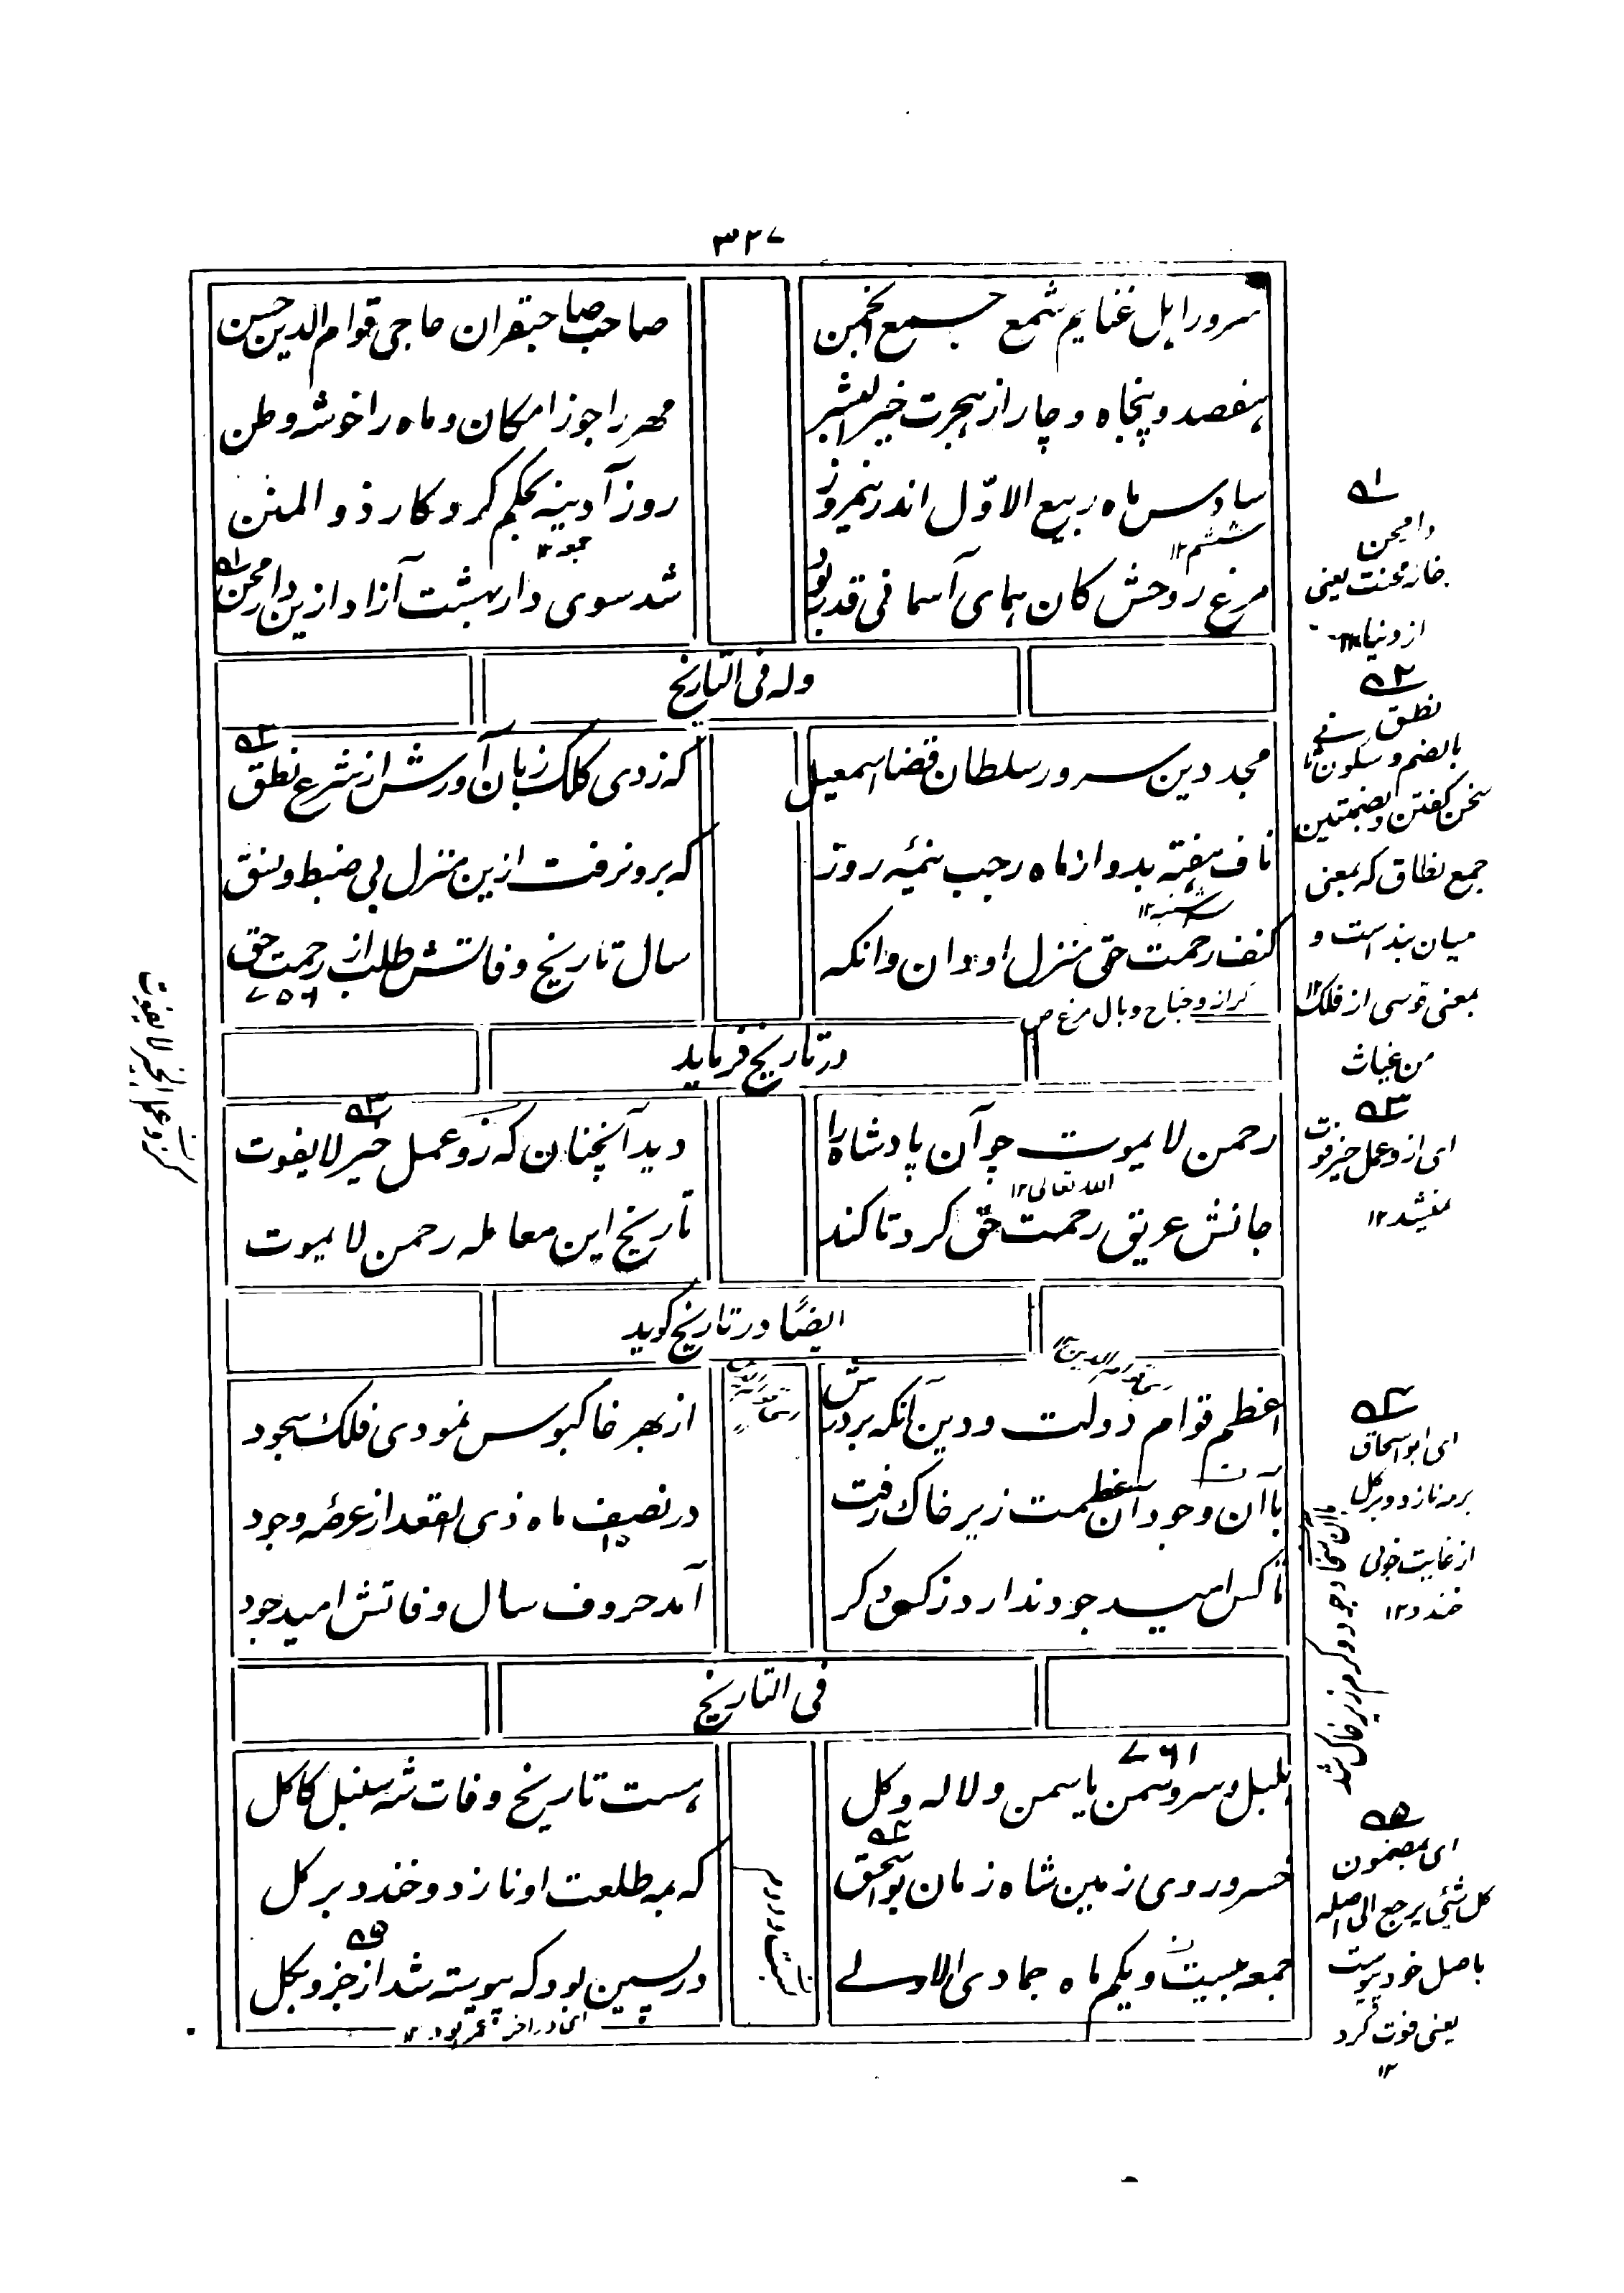 ۳۲۷
سرور اہل غنایم شمع جمع انجمن
صاحب صاحبقران حاجی قوام الدین حسن
ہفصد و پنجاہ و چار از ہجرت خیر البشر
مہر را جوزا مکان و ماہ را خوشہ وطن
سادس ماہ ربیع الاوّل اندر نیمروز
روز آدینہ بحکم کردکار ذوالمنن
ششم ۱۲
جمعہ ۱۲
مرغ روحش کان ہمای آسمانی قدر بود
شد سوی دار بہشت آزاد ازین دار محن
ولہ فی التاریخ
مجد دین سرور سلطان قضا اسمعیل
کہ زدی کلک زبان آورش از شرع نطق
ناف ہفتہ بد و از ماہ رجب نیمۂ روز
کہ برون رفت ازین منزل بی ضبط و نسق
سہ شنبہ ۱۲
کنف رحمت حق منزل او دان وانکہ
سال تاریخ وفاتش طلب از رحمت حق
۷۵۶
کرانہ و جناح و بال مرغ ص
در تاریخ فرماید
رحمن لا یموت چو آن پادشاہ را
دید آنچنان کہ زو عمل خیر لا یفوت
اللہ تعالی ۱۲
جانش غریق رحمت حق کرد تا کند
تاریخ این معاملہ رحمن لا یموت
ایضًا در تاریخ گوید
اعظم قوام دولت و دین آنکہ بر درش
از بہر خاکبوس نمودی فلک سجود
با آن وجود آن عظمت زیر خاک رفت
در نصیف ماہ ذی القعد از عرصہ وجود
۱۵
تا کس امید جود ندارد ز کس دکر
آمد حروف سال وفاتش امید جود
فی التاریخ
۷۶۱
بلبل و سرو و سمن یاسمن و لالہ و کل
ہست تاریخ وفات شہ سنبل کاکل
خسرو روی زمین شاہ زمان بو اسحق
کہ بمہ طلعت او نازد و خندد بر کل
جمعہ بیست و یکم ماہ جمادی الاولے
در پسین بود کہ پیوستہ شد از جزو بکل
ای در آخر عمر بود ۱۲
۱ہ
دار محن
خانہ محنت یعنی
از دنیا ۱۲
۲ہ
نطق
بالضم و سکون ثانے
سخن کفتن و بضمتین
جمع نطاق کہ بمعنی
میان بند است و
بمعنی قوسی از فلک ۱۲
من غیاث
۳ہ
ای از و عمل خیر فوت
نمیشد ۱۲
۴ہ
ای ابو اسحاق
بر مہ نازد و بر کل
از غایت خوبی
خندد ۱۲
با آن سخا و جود و کرم زیر خاک شد
۵ہ
ای بمضمون
کل شئی یرجع الی اصلہ
باصل خود پیوست
یعنی فوت کرد
۱۲
کزو عمل الخیر لا یفوت